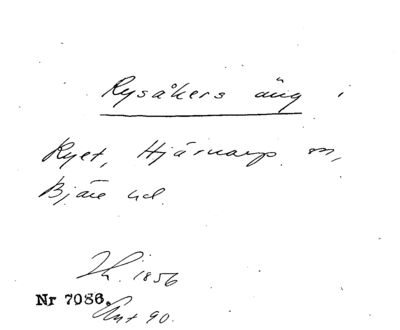 Rysåkers äng i
Ryet, Hjärnarp sn,
Bjäre hd.
Th. 1856
Nr 7086.
Ant 90.